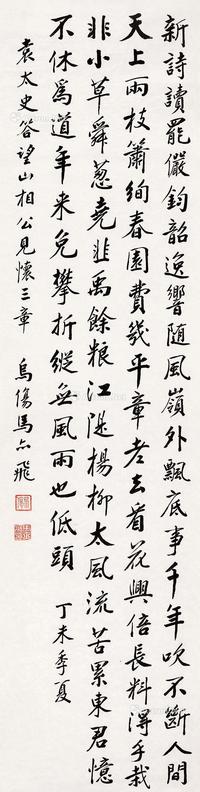 新詩讀罷儼鈞韶逸響隨風嶺外飄底事千年吹不斷人間
天上兩枝簫絢春園費幾平章老去看花興倍長料得手栽
非小草舜蔥堯韭禹餘粮江隄楊柳太風流苦累東君憶
不休為道年来免攀折縱無風雨也低頭 丁未季夏
袁太史答望山相公見懷三章 烏傷馬公飛